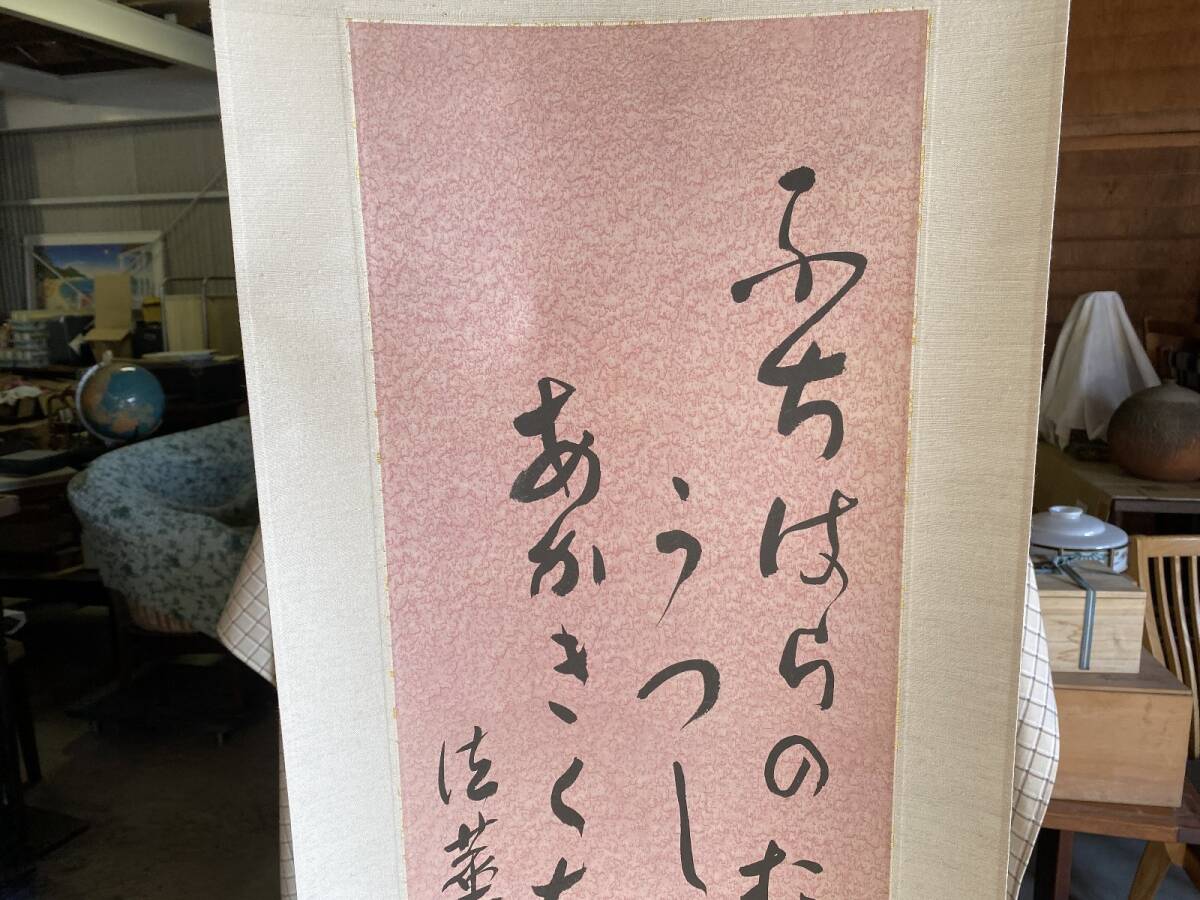 ふちはらのお
うつし
あかきくち
法華